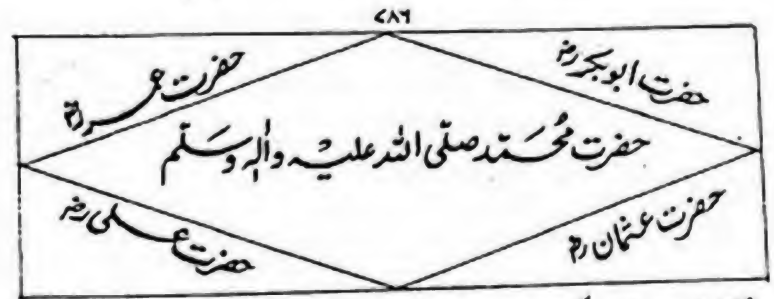 ۷۸۶
حضرت ابوبکر رضؓ
حضرت عمر رضؓ
حضرت مُحمّد صلّی اللہ علیہ واٰلہٖ وسلّم
حضرت عثمان رضؓ
حضرت علی رضؓ